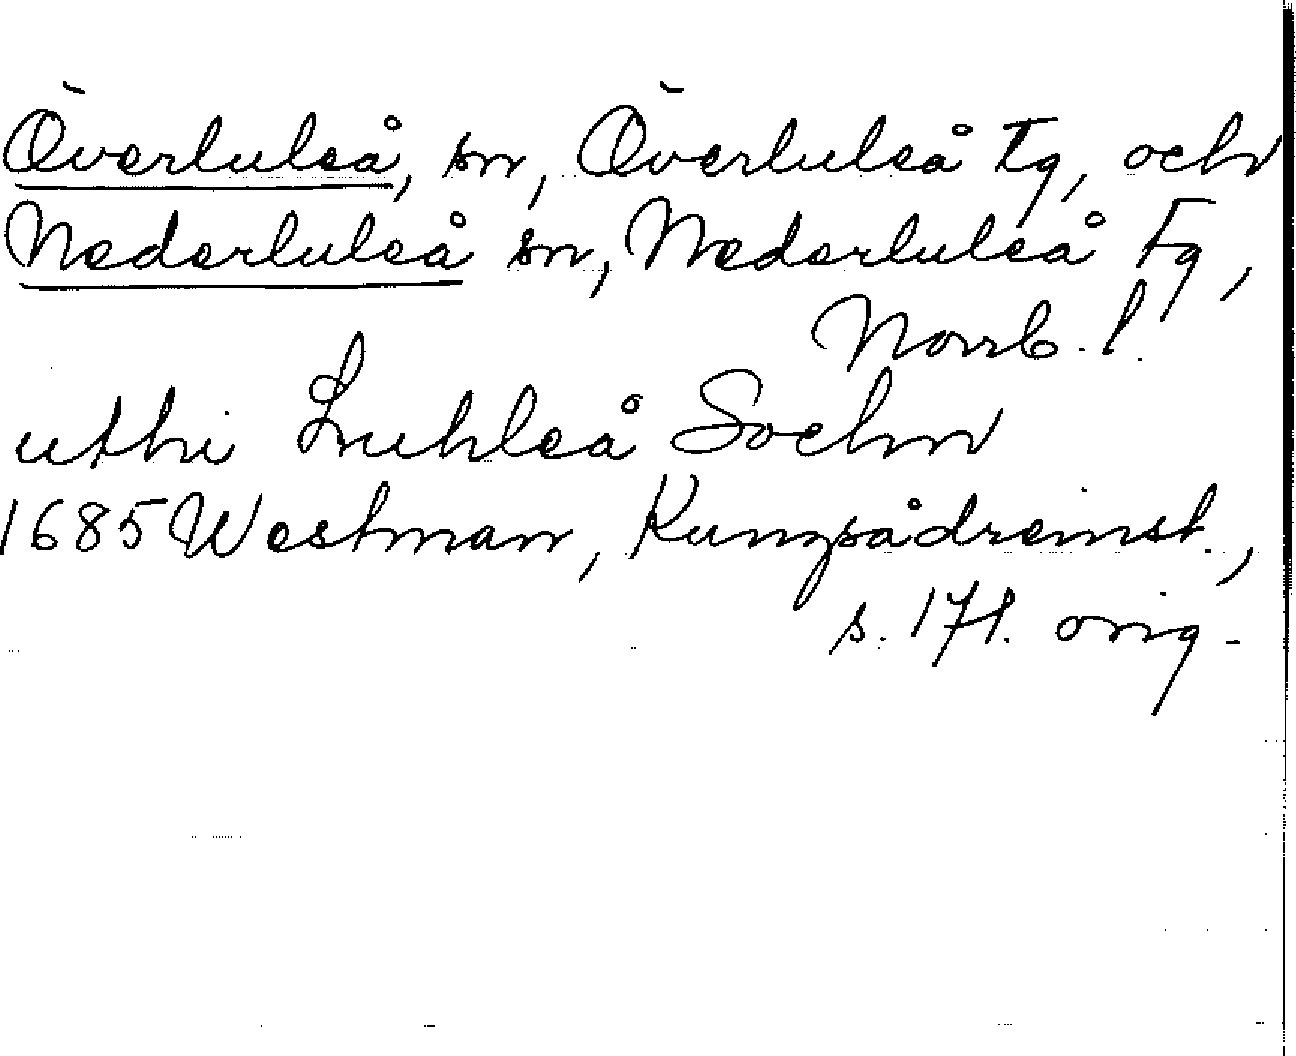 Överluleå, sn, Överluleå Tg, och
Nederluleå sn, Nederluleå Tg,
Norrb. l.
uthi Luhleå Sochn
1685 Westman, Kungsådreinst.,
s. 171. orig.